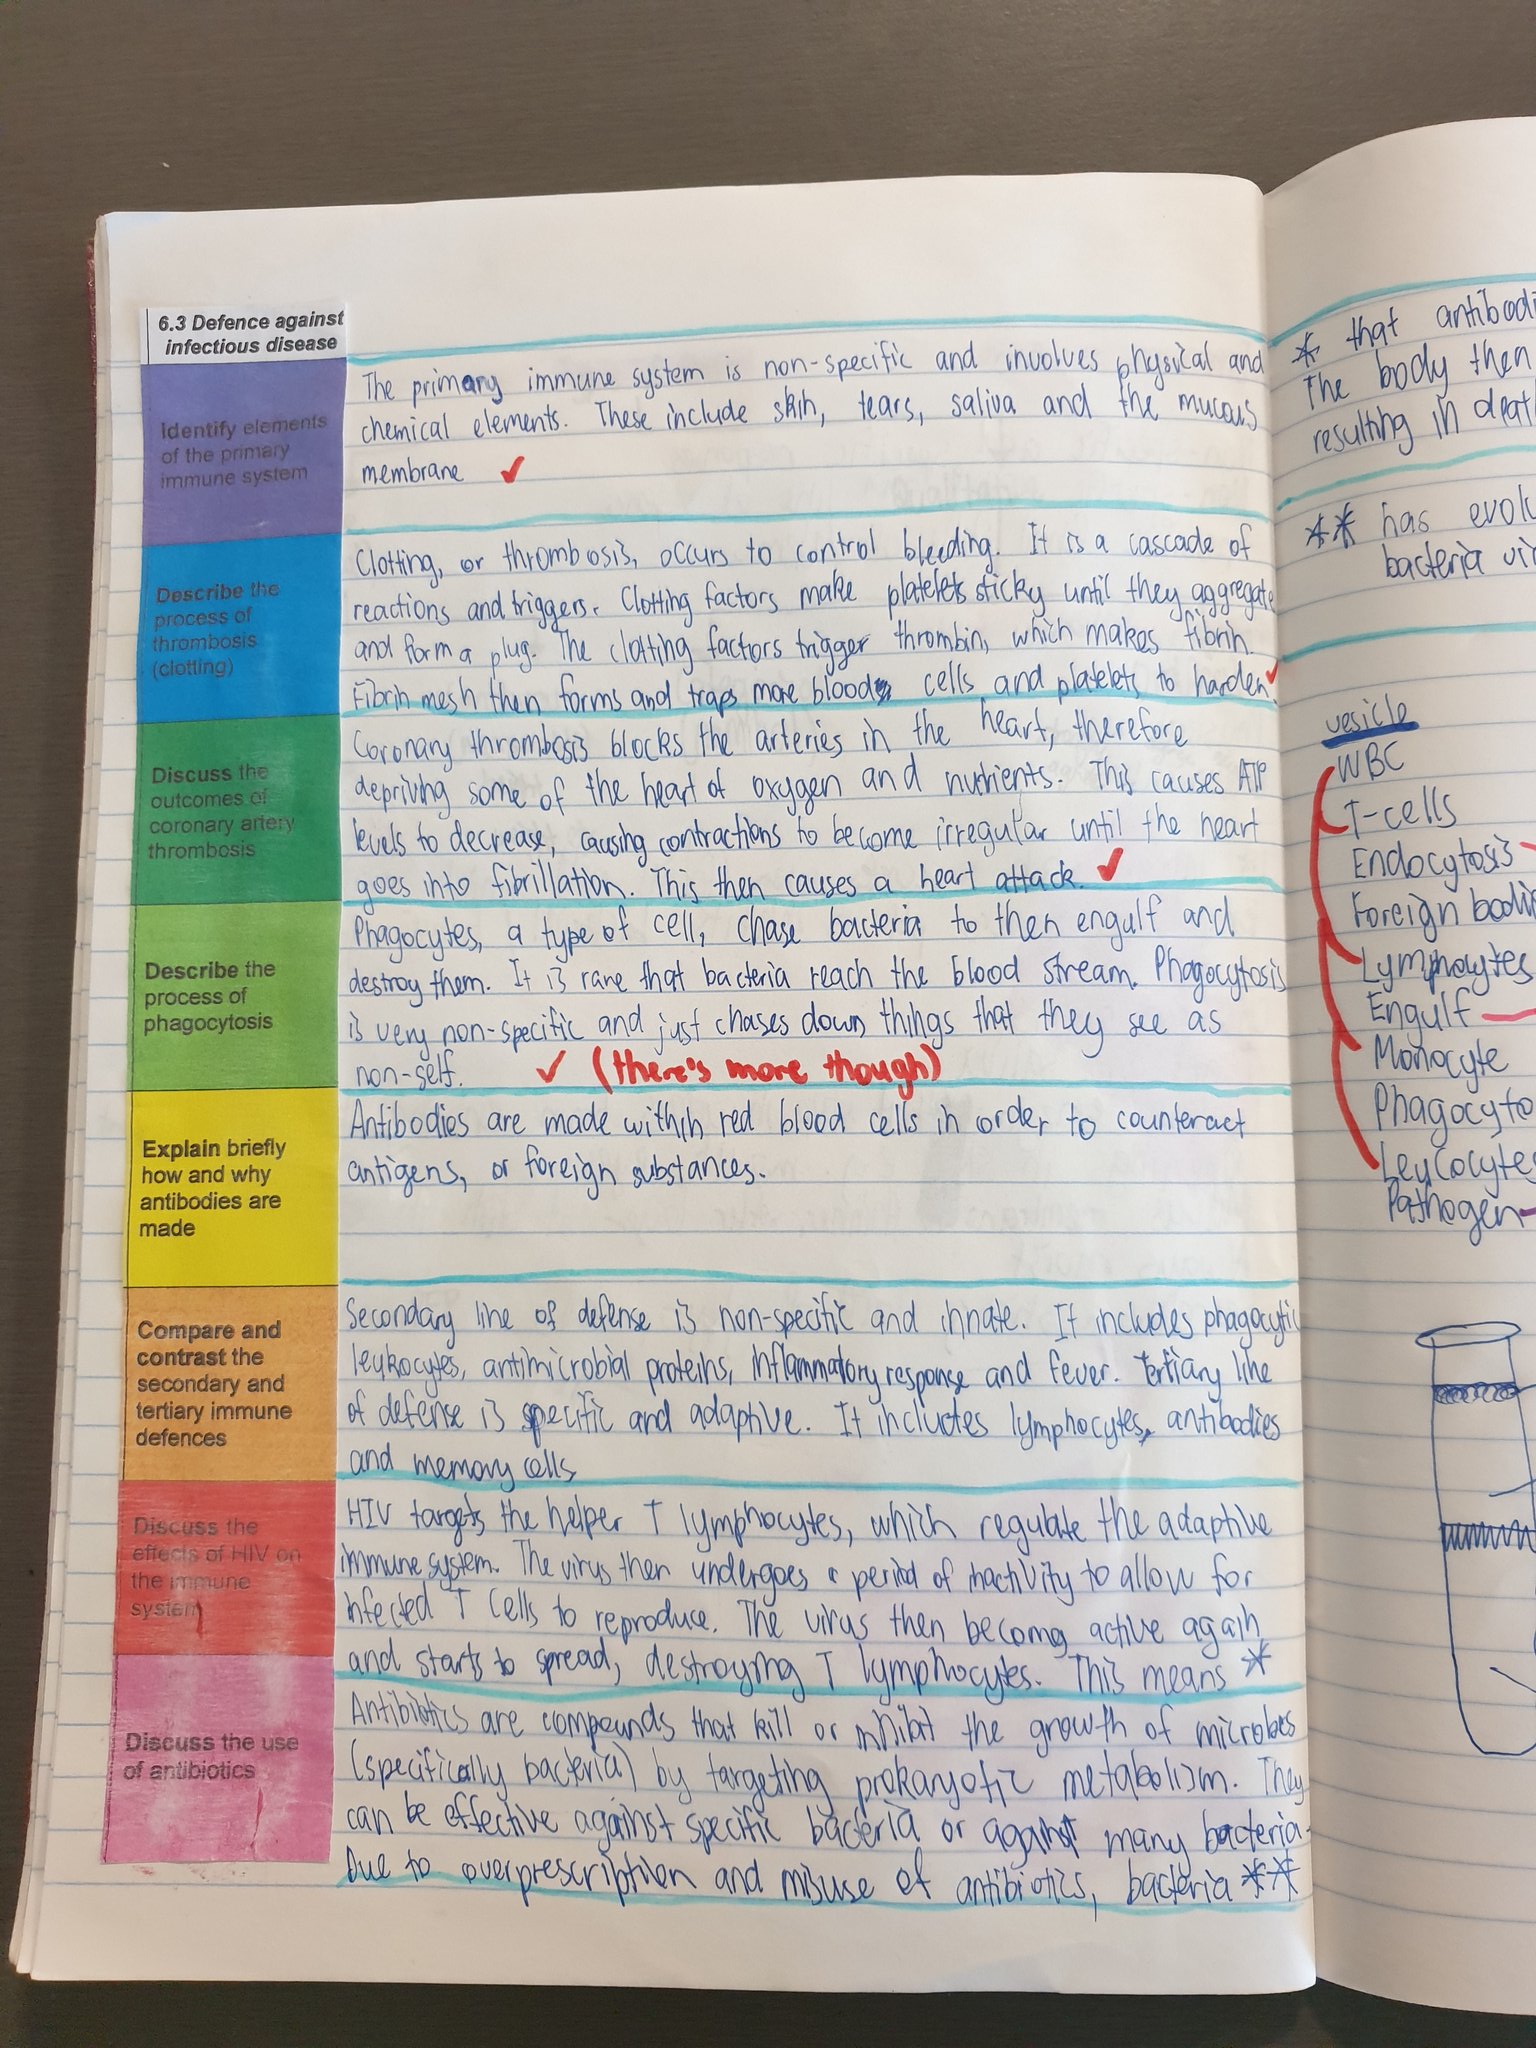 6.3 Defence against
infectious disease
Identify elements
of the primary
immune system
The primary immune system is non-specific and involves physical and
chemical elements. These include skin, tears, saliva and the mucous
membrane ✓
Describe the
process of
thrombosis
(clotting)
Clotting, or thrombosis, occurs to control bleeding. It is a cascade of
reactions and triggers. Clotting factors make platelets sticky until they aggregate
and form a plug. The clotting factors trigger thrombin, which makes fibrin.
Fibrin mesh then forms and traps more blood cells and platelets to harden ✓
Discuss the
outcomes of
coronary artery
thrombosis
Coronary thrombosis blocks the arteries in the heart, therefore
depriving some of the heart of oxygen and nutrients. This causes ATP
levels to decrease, causing contractions to become irregular until the heart
goes into fibrillation. This then causes a heart attack. ✓
Describe the
process of
phagocytosis
Phagocytes, a type of cell, chase bacteria to then engulf and
destroy them. It is rare that bacteria reach the blood stream. Phagocytosis
is very non-specific and just chases down things that they see as
non-self. ✓ (there's more though)
Explain briefly
how and why
antibodies are
made
Antibodies are made within red blood cells in order to counteract
antigens, or foreign substances.
Compare and
contrast the
secondary and
tertiary immune
defences
Secondary line of defense is non-specific and innate. It includes phagocytic
leukocytes, antimicrobial proteins, inflammatory response and fever. Tertiary line
of defense is specific and adaptive. It includes lymphocytes, antibodies
and memory cells
Discuss the
effects of HIV on
the immune
system
HIV targets the helper T lymphocytes, which regulate the adaptive
immune system. The virus then undergoes a period of inactivity to allow for
infected T cells to reproduce. The virus then becomg active again
and starts to spread, destroying T lymphocytes. This means *
Discuss the use
of antibiotics
Antibiotics are compounds that kill or inhibit the growth of microbes
(specifically bacteria) by targeting prokaryotic metabolism. They
can be effective against specific bacteria or against many bacteria.
Due to overprescription and misuse of antibiotics, bacteria **
* that antibodi
The body then
resulting in deat
** has evol
bacteria vir
vesicle
WBC
T-cells
Endocytosis
Foreign bodi
Lymphocytes
Engulf
Monocyte
Phagocyto
Leycocytes
Pathogen